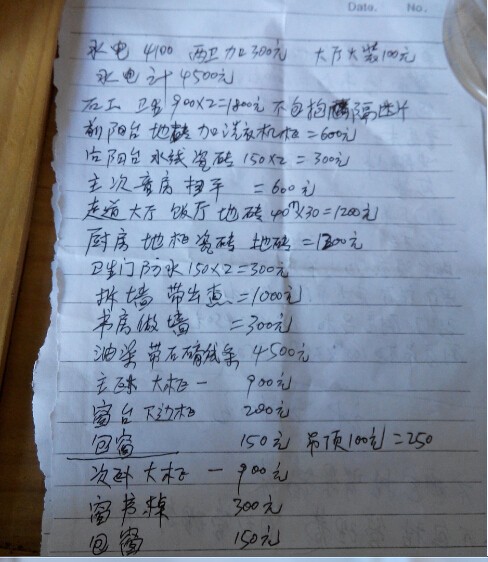 Date. No.
水电 4100 两卫加300元 大厅大装100元
水电计4500元
石工 卫生900×2=1800元 不包括隔断片
前阳台地砖加洗衣机柜=600元
后阳台水线瓷砖150×2=300元
主次卧房找平=600元
走道大厅饭厅地砖40m×30=1200元
厨房地柜瓷砖地砖=1200元
卫生门防水150×2=300元
拆墙带出惠=1000元
书房做墙=300元
油染带石膏线条4500元
主卧大柜一 900元
窗台下边柜 200元
包窗 150元 吊顶100元=250
次卧大柜一900元
窗书棹 300元
包窗 150元